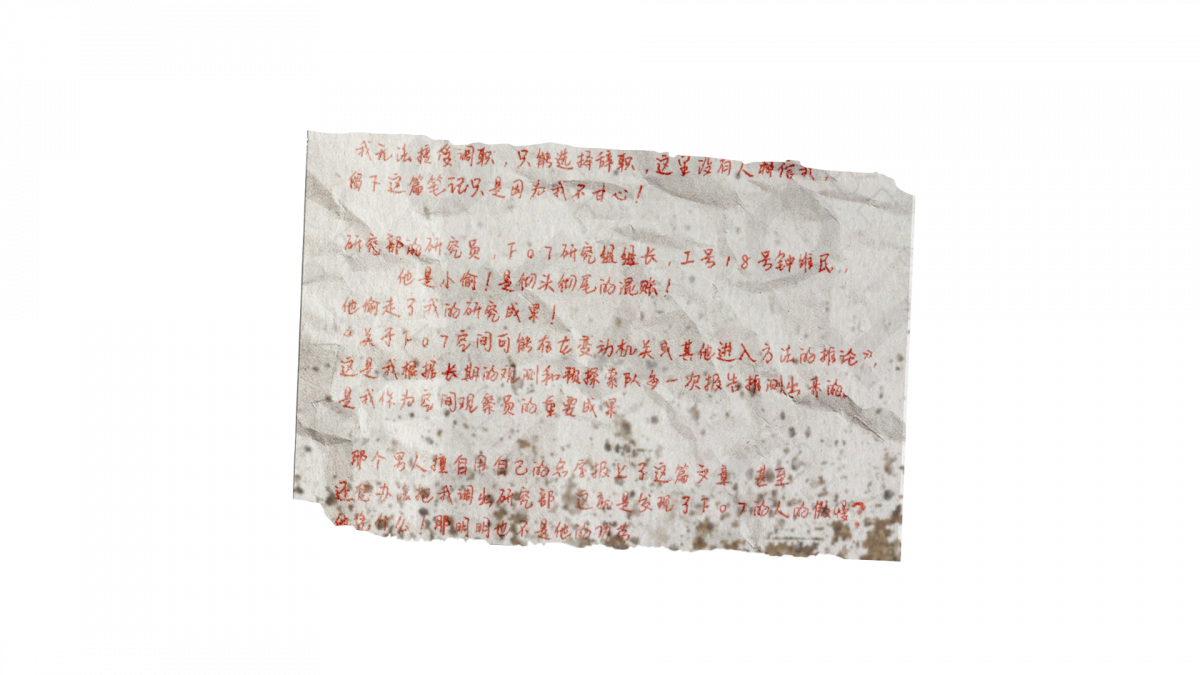 我无法接受调职，只能选择辞职，这里没有人相信我，
留下这篇笔记只是因为我不甘心！
研究部的研究员，F07研究组组长，工号18号钟维民，
他是小偷！是彻头彻尾的混账！
他偷走了我的研究成果！
“关于F07空间可能存在变动机关或其他进入方法的推论”，
这是我根据长期的观测和被探索队多一次报告推测出来的，
是我作为空间观察员的重要成果
那个男人擅自用自己的名字报上了这篇文章 甚至
还想办法把我调出研究部 这就是发现了F07的人的傲慢？
他凭什么！那明明也不是他的功劳